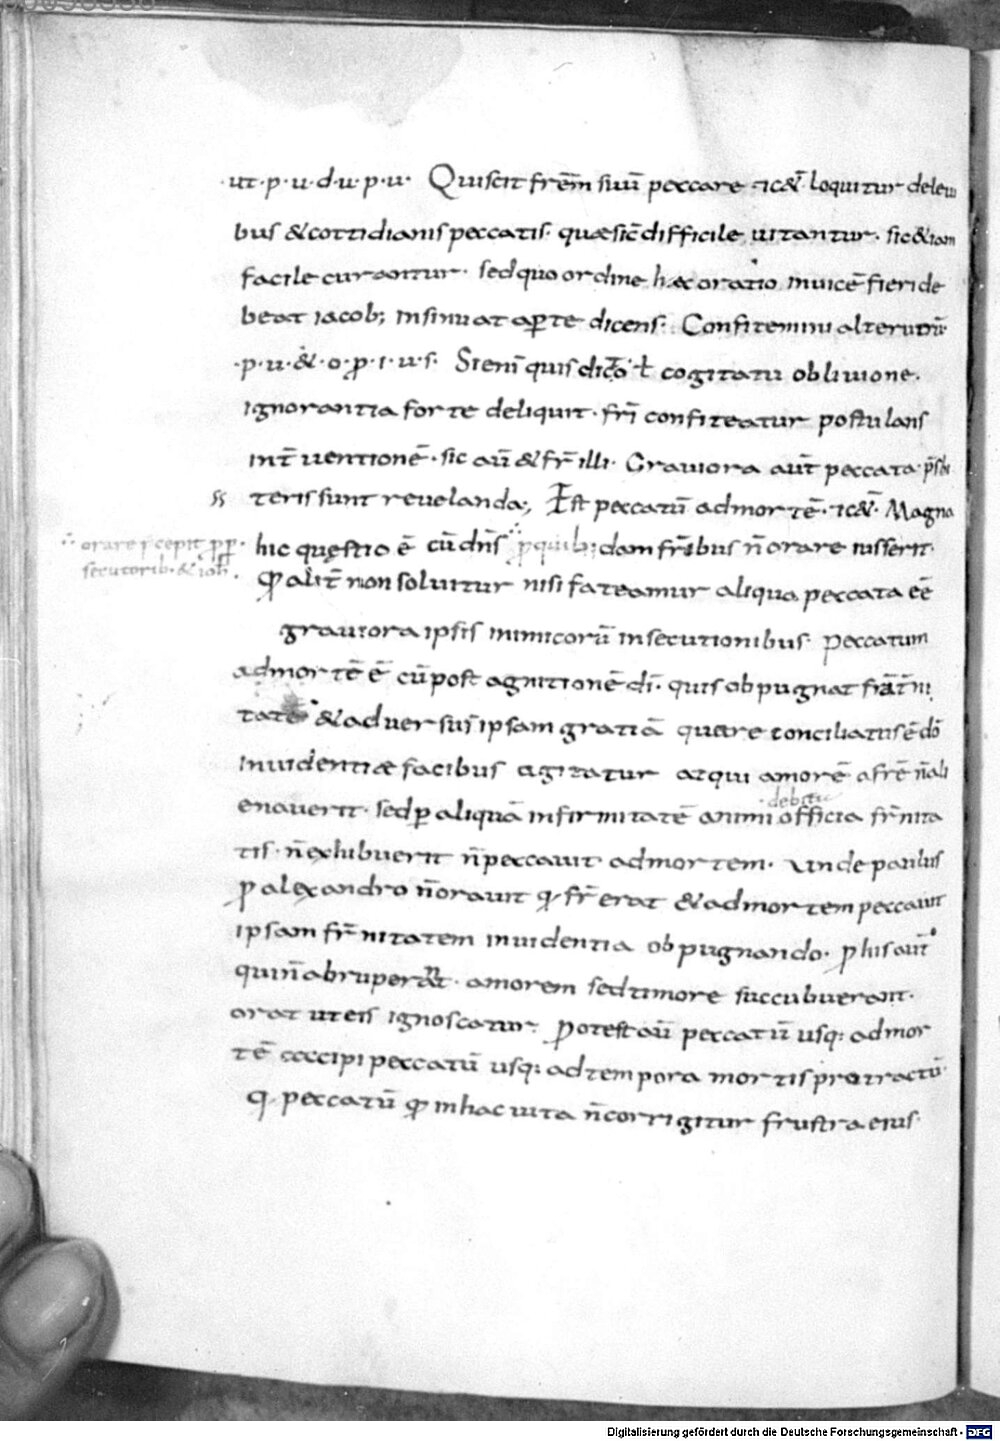 ut·p·u·d·u·p·u· Quiscit frēm suū peccare ⁊c&̄ loquitur deleui
bus &cottidianis peccatis· quæsic̄ difficile uitantur· sic&iam
facile curantur· sedquo ordine hæcoratio inuicē fieri de
beat iacob; insinuat aperte dicens· Confitemini alterutrū·
·p·u·&·o·ꝓ·i·u·s· Sienī quis dicto ł cogitatu obliuione·
ignorantia forte deliquit· fr̄i confiteatur postulans
int̄uentionē· sic aū &fr̄ illi· Grauiora aut̄ peccata pr̄sbi
ss teris sunt reuelanda; Est peccatū admortē· ⁊c&̄· Magna
∴ orare p̄cepit ꝓ ꝑ
secutorib·&ioh·
hic quęstio ē cū dn̄s ∴ ꝓ quib;dam fr̄ibus n̄ orare iusserit·
ꝙ alit̄ non soluitur nisi fateamur aliqua peccata eē
grauiora ipsis inimicorū insecutionibus· peccatum
admortē ē cū post agnitionē dī· quis obpugnat frat̄ni
tatē &aduersus ipsam gratiā quare conciliatus ē dō
inuidentiæ facibus agitatur atqui amorē afrē n̄ali
debitæ
enauerit· sed ꝑ aliquā infirmitatē animi officia fr̄nita
tis· n̄exhibuerit n̄peccauit admortem· unde paulus
ꝓ alexandro n̄orauit q· fr̄ erat &admortem peccauit
ipsam fr̄nitatem inuidentia obpugnando· ꝓ his aut̄
quin̄abruperant· amorem sedtimore succubuerant·
orat uteis ignoscatur· Potest aū peccatū usq: admor
tē accipi peccatū usq: adtempora mortis protractū·
q· peccatū ꝙ inhac uita n̄corrigitur frustra eius·
Digitalisierung gefördert durch die Deutsche Forschungsgemeinschaft - DFG